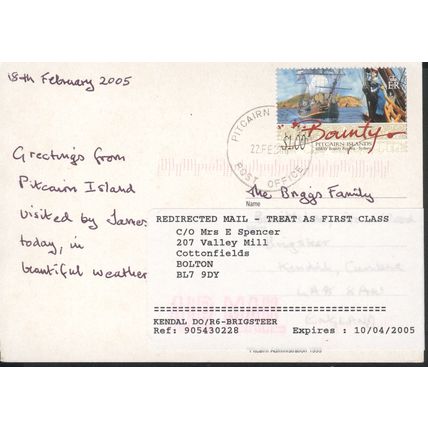 18th February 2005
Greetings from
Pitcairn Island
visited by James
today, in
beautiful weather
PITCAIRN
22 FEB
POST OFFICE
$1.00
Bounty
PITCAIRN ISLANDS
The Briggs Family
Name
REDIRECTED MAIL - TREAT AS FIRST CLASS
C/O Mrs E Spencer
207 Valley Mill
Cottonfields
BOLTON
BL7 9DY
KENDAL DO/R6-BRIGSTEER
Ref: 905430228 Expires : 10/04/2005
ENGLAND